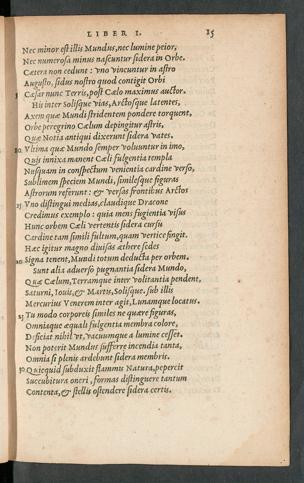 LIBER I. 15
Nec minor est illis Mundus, nec lumine peior,
Nec numerosa minus nascuntur sidera in Orbe.
Cætera non cedunt: vno vincuntur in astro
Augusto, sidus nostro quod contigit Orbi
Cæsar nunc Terris, post Cælo maximus auctor.
His inter Solisque vias, Arctosque latentes,
Axem quæ Mundi stridentem pondere torquent,
Orbe peregrino Cælum depingitur astris,
Quæ Notia antiqui dixerunt sidera vates.
20. Vltima quæ Mundo semper voluuntur in imo,
Quis innixa manent Cæli fulgentia templa
Nusquam in conspectum venientia cardine verso,
Sublimem speciem Mundi, similesque figuras
Astrorum referunt: & versas frontibus Arctos
25. Vno distingui medias, claudique Dracone
Credimus exemplo: quia mens fugientia visus
Hunc orbem Cæli vertentis sidera cursu
Cardine tam simili fultum, quam vertice fingit.
Hæc igitur magno diuisas æthere sedes
20. Signa tenent, Mundi totum deducta per orbem.
Sunt alia aduerso pugnantia sidera Mundo,
Quæ Cælum, Terramque inter volitantia pendent,
Saturni, Iouis, & Martis, Solisque, sub illis
Mercurius Venerem inter agit, Lunamque locatus.
25. Tu modo corporeis similes ne quære figuras,
Omniaque æquali fulgentia membra colore,
Deficiat nihil vt, vacuumque a lumine cesset.
Non poterit Mundus sufferre incendia tanta,
Omnia si plenis ardebunt sidera membris.
30. Quicquid subduxit flammis Natura, pepercit
Succubitura oneri, formas distinguere tantum
Contenta, & stellis ostendere sidera certis.